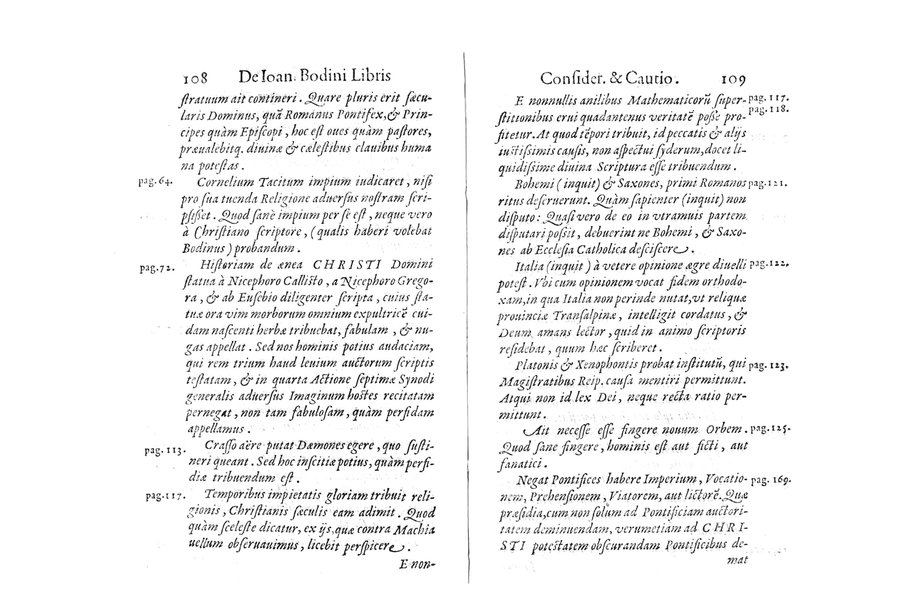 108 De Ioan. Bodini Libris
ſtratuum ait contineri. Quare pluris erit ſæcu-
laris Dominus, quã Romanus Pontifex, & Prin-
cipes quàm Epiſcopi, hoc eſt oues quàm paſtores,
præualebitq. diuinæ & cæleſtibus clauibus huma
na poteſtas.
pag. 64. Cornelium Tacitum impium iudicaret, niſi
pro ſua tuenda Religione aduerſus noſtram ſcri-
pſiſſet. Quod ſanè impium per ſe eſt, neque vero
à Chriſtiano ſcriptore, (qualis haberi volebat
Bodinus) probandum.
pag. 72. Hiſtoriam de ænea CHRISTI Domini
ſtatua à Nicephoro Calliſto, a Nicephoro Grego-
ra, & ab Euſebio diligenter ſcripta, cuius ſta-
tuæ ora vim morborum omnium expultricẽ cui-
dam naſcenti herbæ tribuebat, fabulam, & nu-
gas appellat. Sed nos hominis potius audaciam,
qui rem trium haud leuium auctorum ſcriptis
teſtatam, & in quarta Actione ſeptimæ Synodi
generalis aduerſus Imaginum hoſtes recitatam
pernegat, non tam fabuloſam, quàm perfidam
appellamus.
pag. 113. Craſſo aëre putat Dæmones egere, quo ſuſti-
neri queant. Sed hoc inſcitiæ potius, quàm perfi-
diæ tribuendum eſt.
pag. 117. Temporibus impietatis gloriam tribuit reli-
gionis, Chriſtianis ſæculis eam adimit. Quod
quàm ſceleſte dicatur, ex ijs, quæ contra Machia
uellum obſeruauimus, licebit perſpicere.
E non-
Conſider. & Cautio. 109
E nonnullis anilibus Mathematicorũ ſuper- pag. 117.
ſtitionibus erui quadantenus veritatẽ poſſe pro- pag. 118.
fitetur. At quod tẽpori tribuit, id peccatis & alijs
iuſtiſſimis cauſis, non aſpectui ſyderum, docet li-
quidiſſime diuina Scriptura eſſe tribuendum.
Bohemi (inquit) & Saxones, primi Romanos pag. 121.
ritus deſeruerunt. Quàm ſapienter (inquit) non
diſputo: Quaſi vero de eo in vtramuis partem
diſputari poſſit, debuerint ne Bohemi, & Saxo-
nes ab Eccleſia Catholica deſciſcere.
Italia (inquit) à vetere opinione ægre diuelli pag. 122.
poteſt. Vbi cum opinionem vocat fidem orthodo-
xam, in qua Italia non perinde nutat, vt reliquæ
prouinciæ Tranſalpinæ, intelligit cordatus, &
Deum amans lector, quid in animo ſcriptoris
reſidebat, quum hæc ſcriberet.
Platonis & Xenophontis probat inſtitutũ, qui pag. 123.
Magiſtratibus Reip. cauſa mentiri permittunt.
Atqui non id lex Dei, neque recta ratio per-
mittunt.
Ait neceſſe eſſe fingere nouum Orbem. pag. 125.
Quod ſane fingere, hominis eſt aut ficti, aut
fanatici.
Negat Pontifices habere Imperium, Vocatio- pag. 169.
nem, Prehenſionem, Viatorem, aut lictorẽ. Quæ
præſidia, cum non ſolum ad Pontificiam auctori-
tatem deminuendam, verumetiam ad CHRI-
STI poteſtatem obſcurandam Pontificibus de-
mat